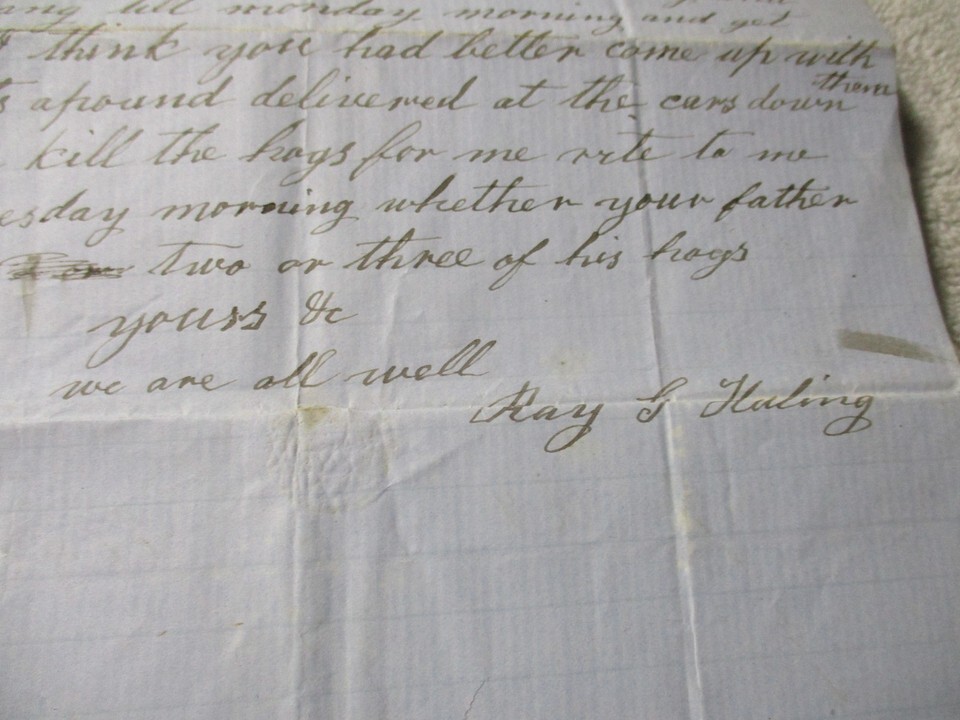 till monday morning and get
think you had better come up with
them
apound delivered at the cars down
kill the hogs for me rite to me
esday morning whether your father
two or three of his hogs
yours &c
we are all well
Ray G Huling